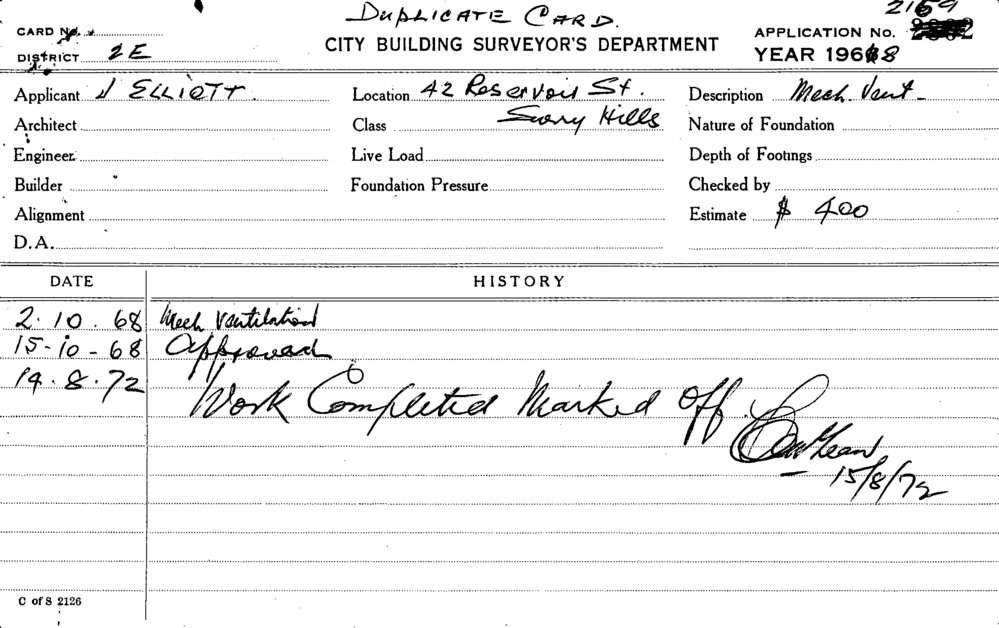 DUPLICATE CARD. 2169
CARD No.
CITY BUILDING SURVEYOR'S DEPARTMENT
APPLICATION No.
DISTRICT 2E
YEAR 1968
Applicant J ELLIOTT. Location 42 Reservoir St. Description Mech. Vent-
Architect Class Surry Hills Nature of Foundation
Engineer Live Load Depth of Footings
Builder Foundation Pressure Checked by
Alignment Estimate $ 400
D.A.
DATE HISTORY
2.10.68 Mech Ventilation
15-10-68 Approved
14.8.72 Work Completed Marked Off.
15/8/72
C of S 2126